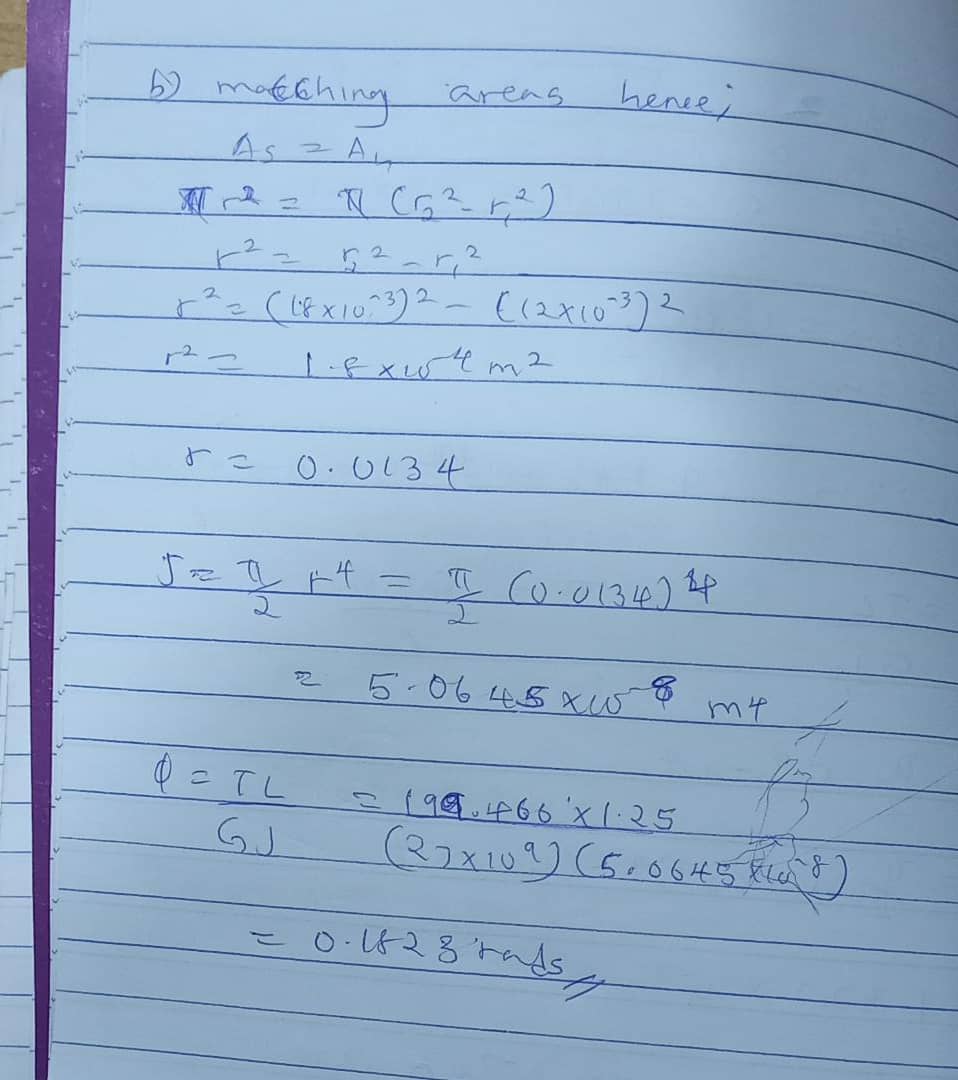 b) matching areas hence;
As = Ah
π r² = π (r₂² - r₁²)
r² = r₂² - r₁²
r² = (18x10⁻³)² - (12x10⁻³)²
r² = 1.8x10⁻⁴ m²
r = 0.0134
J = π/2 r⁴ = π/2 (0.0134)⁴
= 5.0645 x10⁻⁸ m⁴
φ = TL/GJ = 199.466 x 1.25/(27x10⁹)(5.0645x10⁻⁸)
= 0.1823 rads